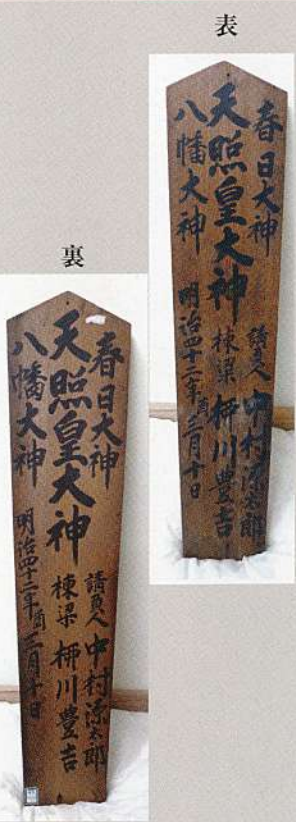 表
春日大神
天照皇大神
八幡大神
請負人 中村源太郎
棟梁 柳川豊吉
明治四十二年 三月十日
裏
春日大神
天照皇大神
八幡大神
請負人 中村源太郎
棟梁 柳川豊吉
明治四十二年 三月十日